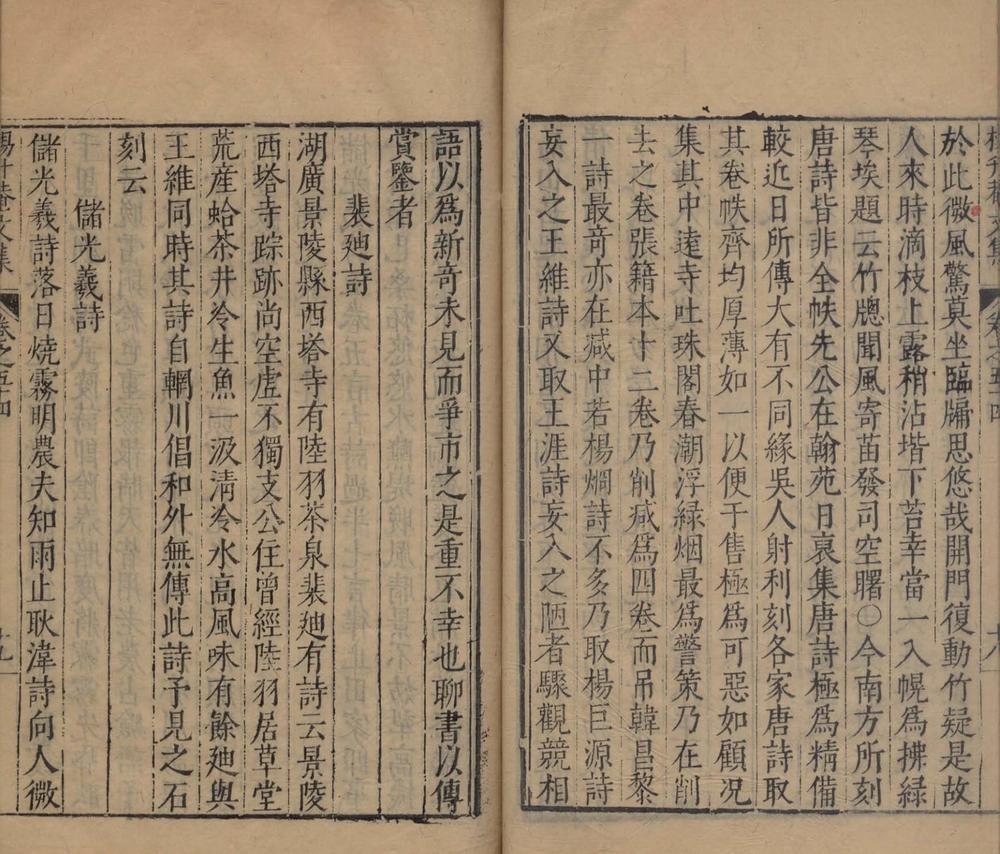 於此微風驚莫坐臨牖思悠哉開門復動竹疑是故
人來時滴枝上露稍沾堦下苔幸當一入幌為拂綠
琴埃題云竹牕聞風寄苗發司空曙○今南方所刻
唐詩皆非全帙先公在翰苑日裒集唐詩極為精備
較近日所傳大有不同緣吳人射利刻各家唐詩取
其卷帙齊均厚薄如一以便于售極為可惡如顧况
集其中達寺吐珠閣春潮浮緑烟最為警策乃在削
去之卷張籍本十二卷乃削减為四卷而吊韓昌黎
一詩最竒亦在减中若楊烱詩不多乃取楊巨源詩
妄入之王維詩又取王涯詩妄入之陋者驟觀競相
語以爲新奇未見而爭市之是重不幸也聊書以傳
賞鑒者
裴廸詩
湖廣景陵縣西塔寺有陸羽茶泉裴廸有詩云景陵
西塔寺踪跡尚空虚不獨支公住曾經陸羽居草堂
荒産蛤茶井冷生魚一汲淸冷水高風味有餘廸與
王維同時其詩自輞川倡和外無傳此詩予見之石
刻云
儲光羲詩
儲光羲詩落日燒霧明農夫知雨止耿湋詩向人微
卷之五十四